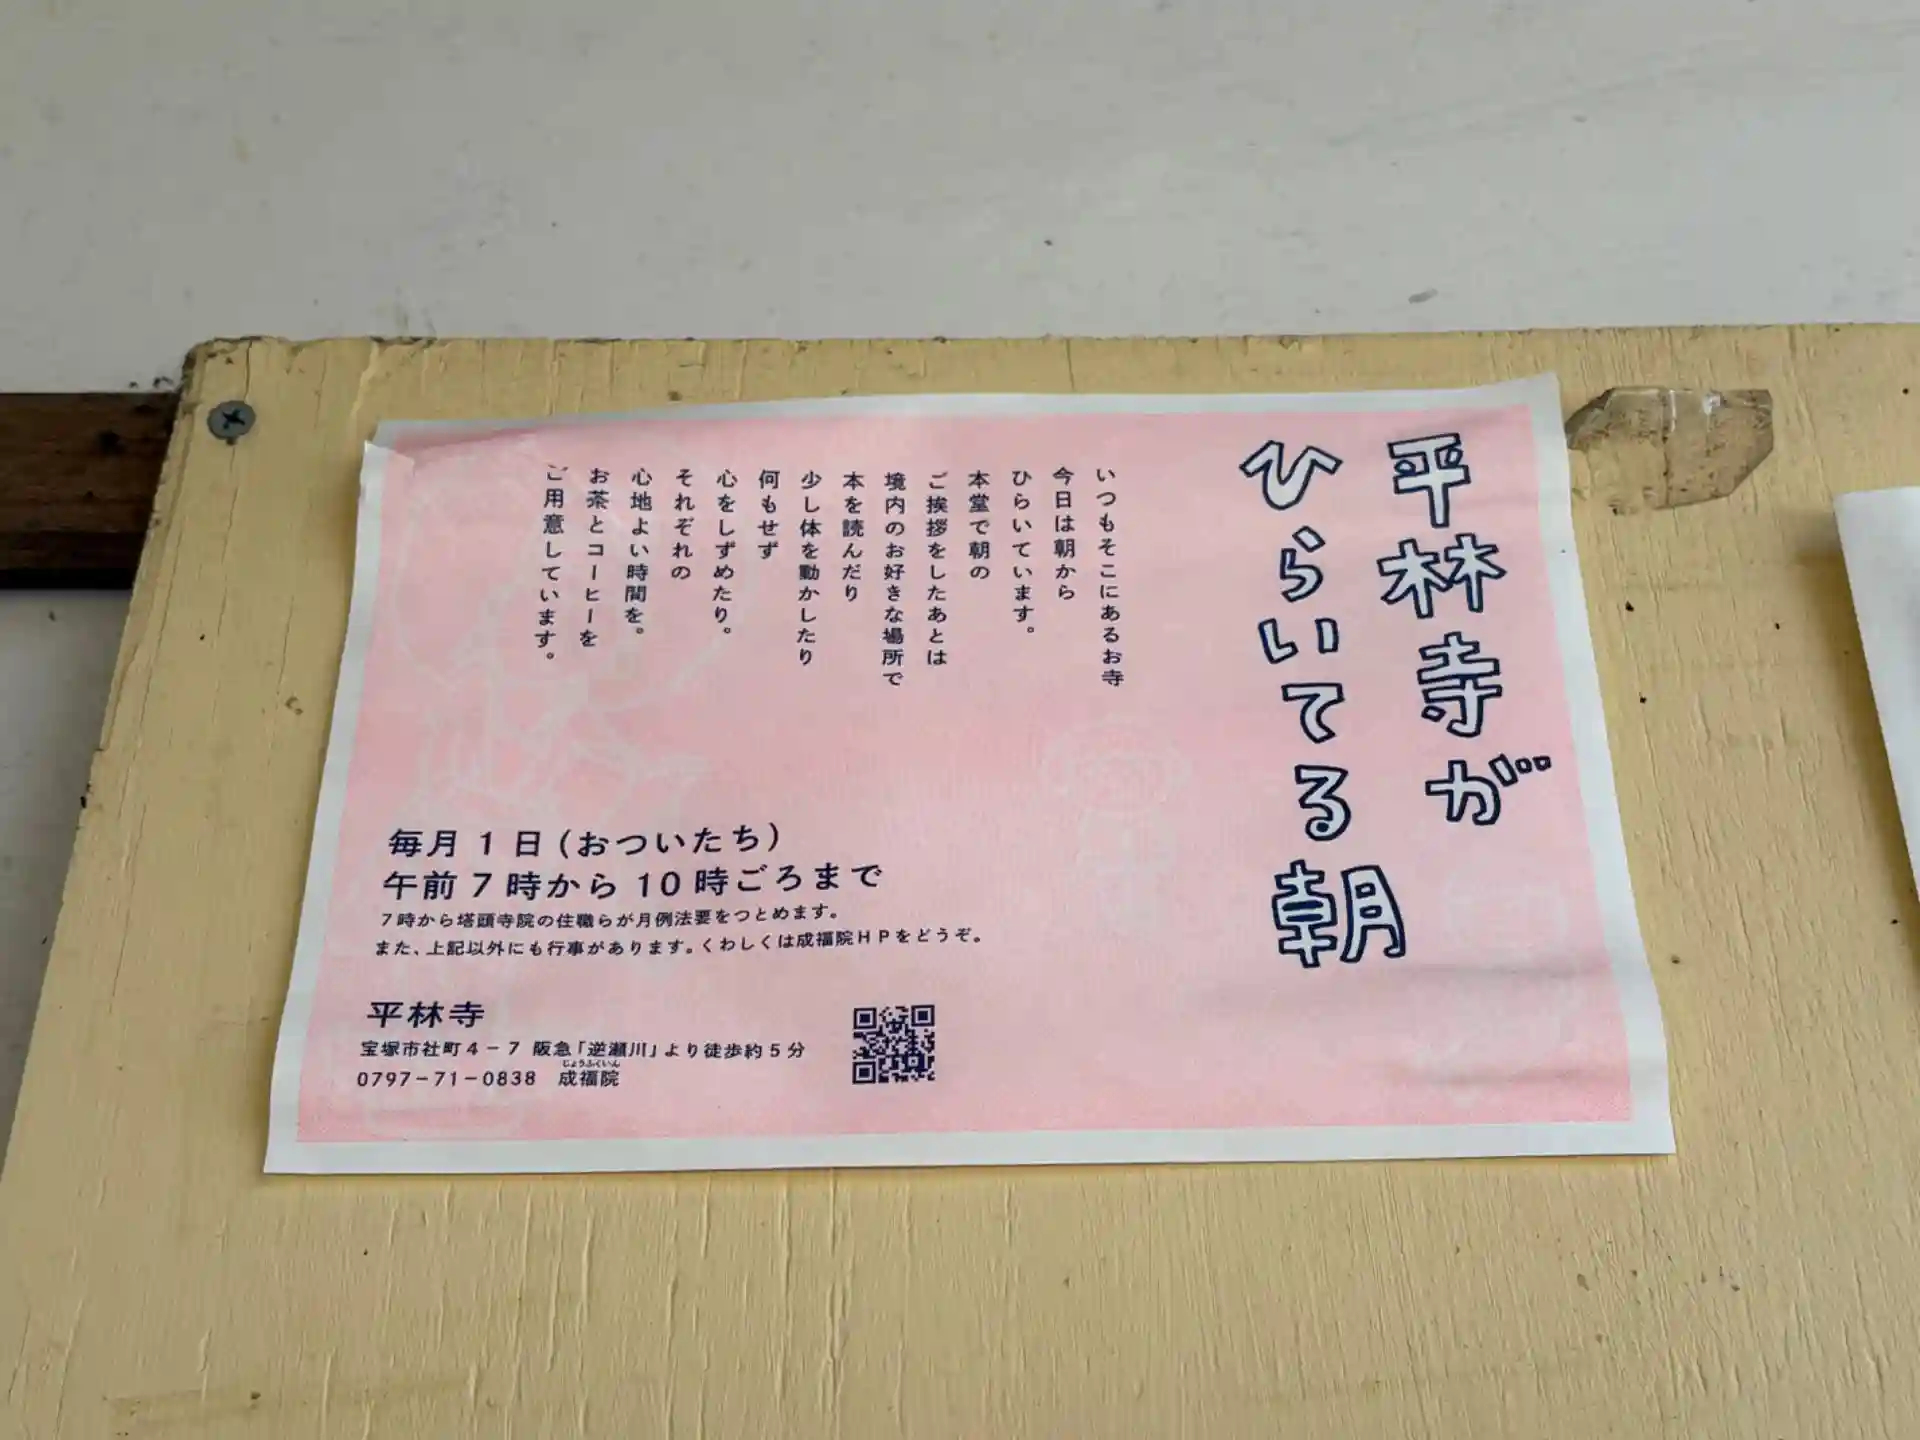 平林寺が
ひらいてる朝
いつもそこにあるお寺
今日は朝から
ひらいています。
本堂で朝の
ご挨拶をしたあとは
境内のお好きな場所で
本を読んだり
少し体を動かしたり
何もせず
心をしずめたり。
それぞれの
心地よい時間を。
お茶とコーヒーを
ご用意しています。
毎月1日(おついたち)
午前7時から10時ごろまで
7時から塔頭寺院の住職らが月例法要をつとめます。
また、上記以外にも行事があります。くわしくは成福院HPをどうぞ。
平林寺
宝塚市社町4-7 阪急「逆瀬川」より徒歩約5分
じょうふくいん
0797-71-0838 成福院